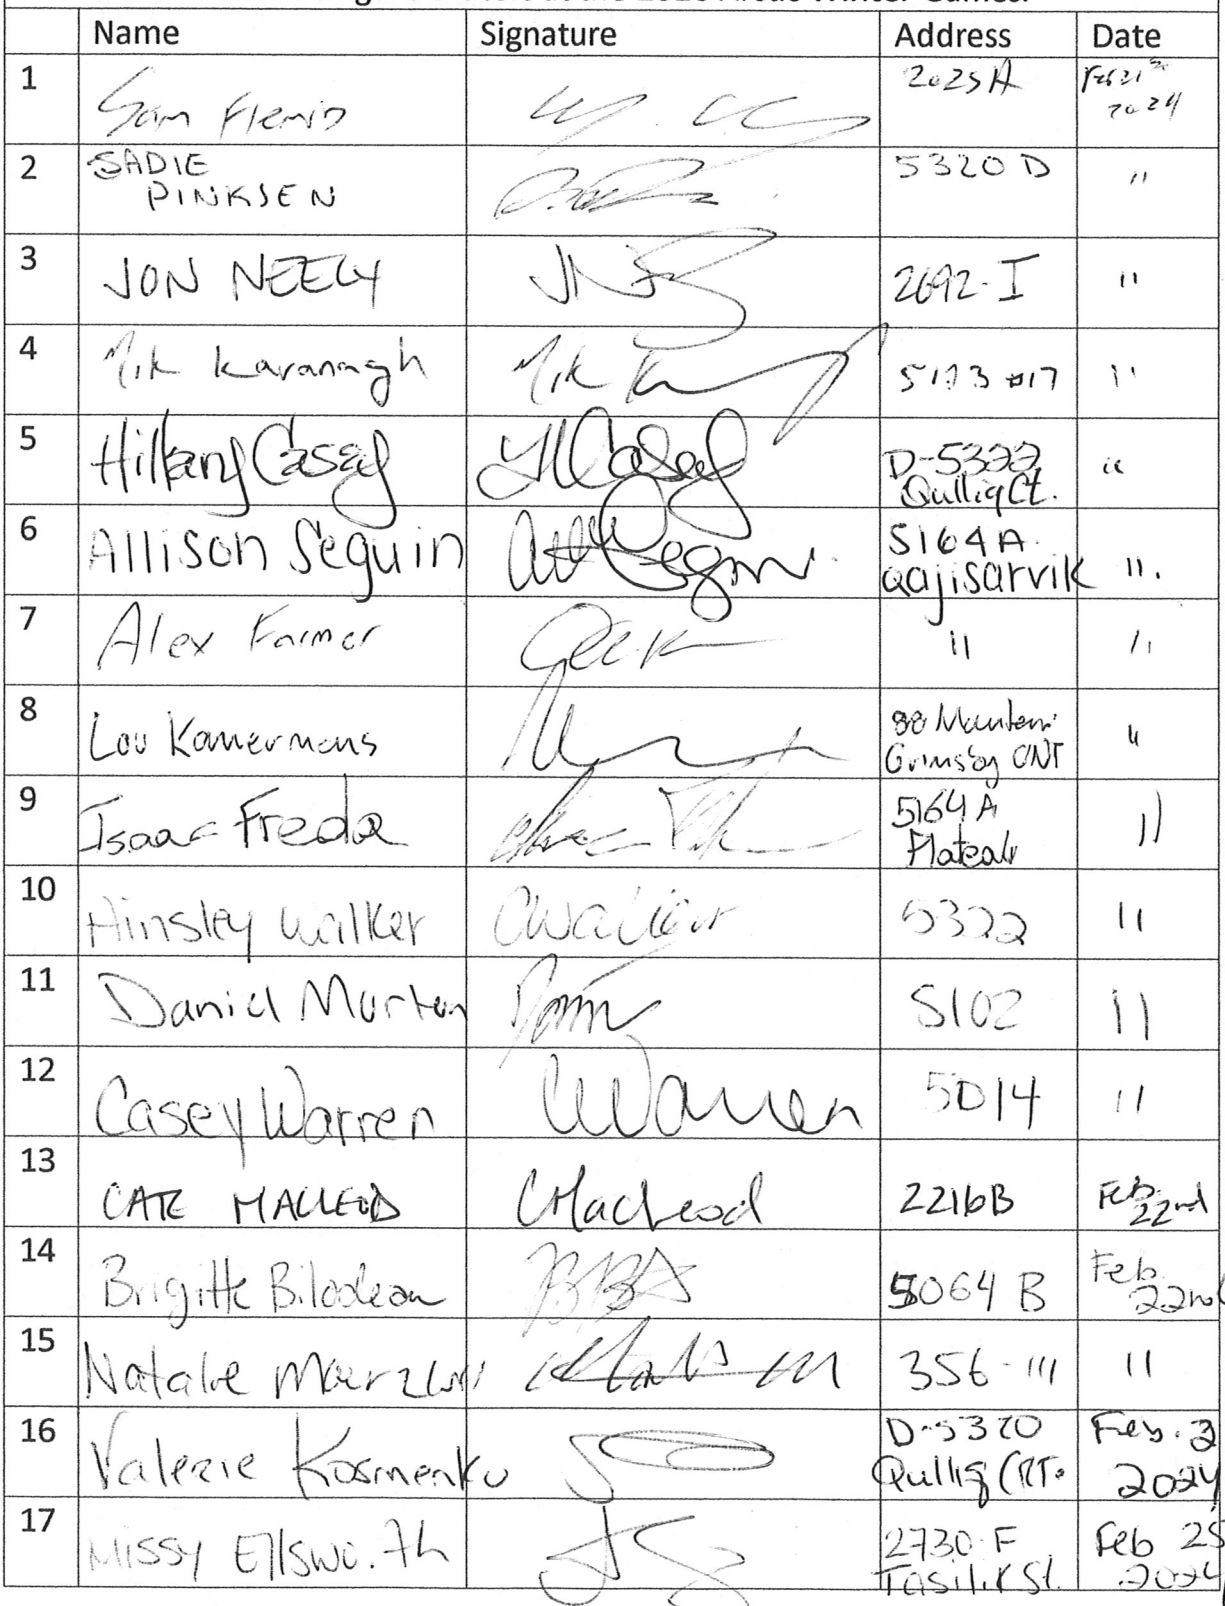 Name Signature Address Date
1 Sam 2025 A Feb 21st 2024
2 SADIE PINKSEN 5320 D "
3 JON NEELY 2692-I "
4 Mik Kavanagh Mik K 5173 #17 "
5 Hillary Casey HCasey D-5322 Qulliq Ct. "
6 Allison Seguin Seguin 5164A Qajisarvik ".
7 Alex Farmer " "
8 Lou Kamermans 88 Grimsby ONT "
9 Isaac Freda 5164 A Plateau "
10 Ainsley Walker AWalker 5322 "
11 Daniel Morton 5102 "
12 Casey Warren CWarren 5014 "
13 CATE MACLEOD CMacLeod 2216B Feb. 22nd
14 Brigitte Bilodeau 5064 B Feb 22nd
15 Natalie 356-111 "
16 Valerie Kosmenko D-5320 Qulliq CRT. Feb. 2 2024
17 Missy Ellsworth 2730 F Tasilik St. Feb 25 2024